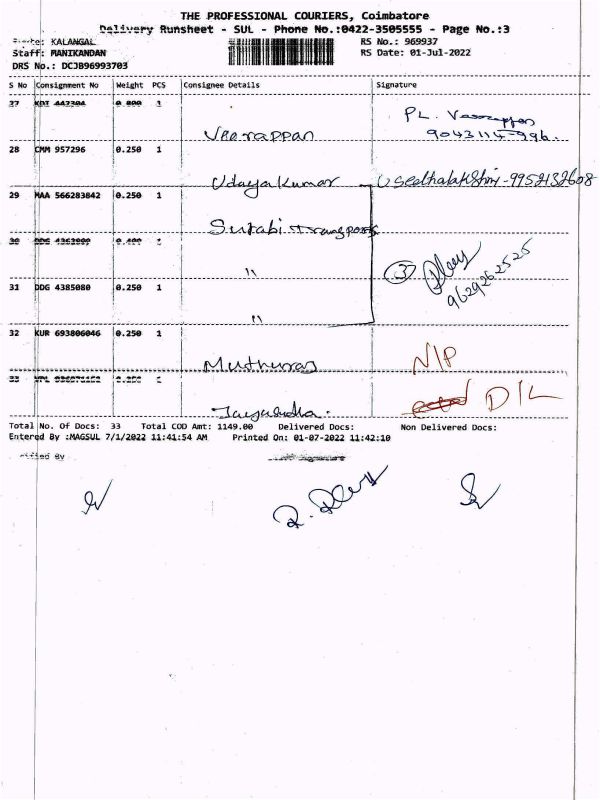 THE PROFESSIONAL COURIERS, Coimbatore
Delivery Runsheet - SUL - Phone No.:0422-3505555 - Page No.:3
KALANGAL
RS No.: 969937
Staff: MANIKANDAN
RS Date: 01-Jul-2022
DRS No.: DCJB96993703
S No Consignment No Weight PCS Consignee Details Signature
27 1 Veerappan PL. Veerappan
9043114-996.
28 CMM 957296 0.250 1 Udayakumar 9952132608
29 MAA 566283842 0.250 1 Surabi Transports
30 " 3
9629262525
31 DDG 4385080 0.250 1 "
32 KUR 693806046 0.250 1 N/P
33 D/L
Total No. Of Docs: 33 Total COD Amt: 1149.00 Delivered Docs: Non Delivered Docs:
Entered By :MAGSUL 7/1/2022 11:41:54 AM Printed On: 01-07-2022 11:42:10